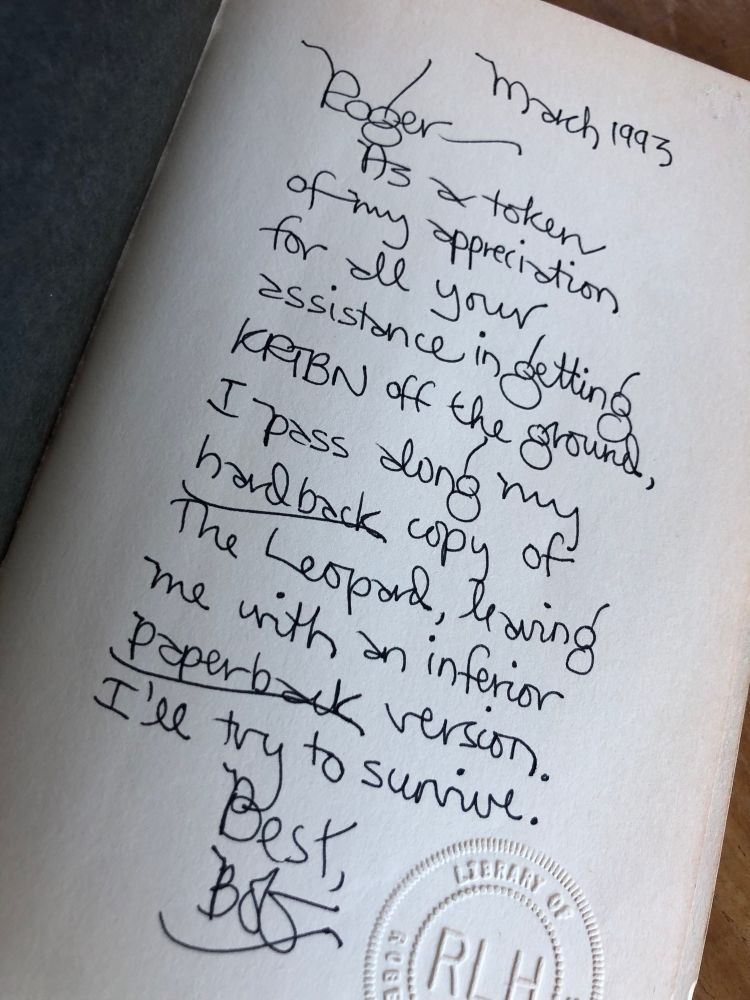 March 1993
Roger
As a token
of my appreciation
for all your
assistance in getting
KRTBN off the ground,
I pass along my
hardback copy of
The Leopard, leaving
me with an inferior
paperback version.
I'll try to survive.
Best,
Bob
LIBRARY OF
ROBE
RLH